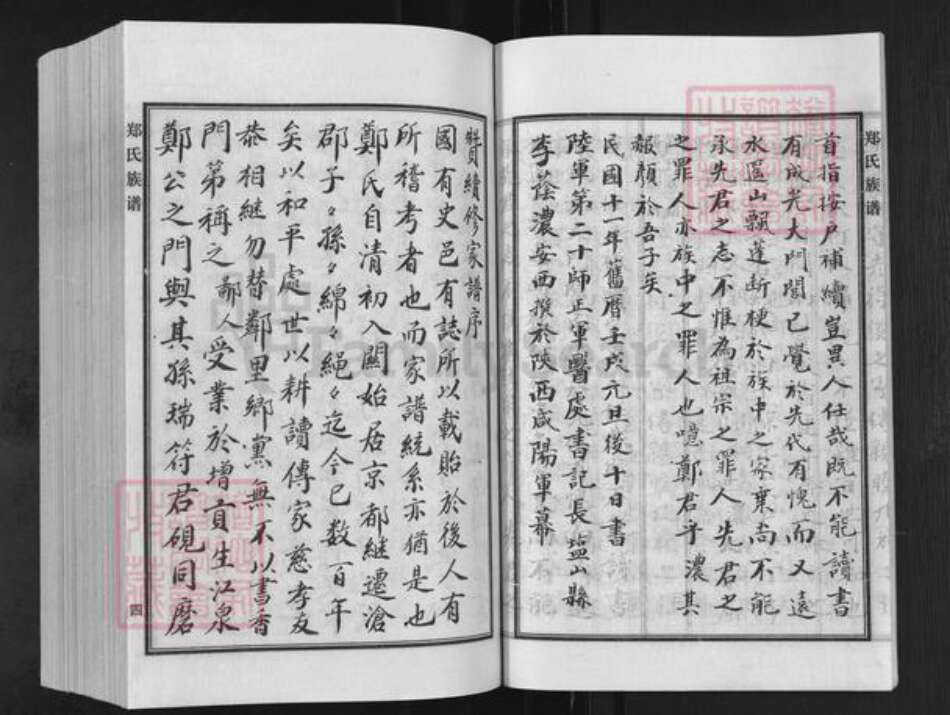 郑氏族谱
首指按户補續豈異人任哉既不能讀書
有成光大門閭已覺於先代有愧而又遠
水區山飄蓬断梗於族中之家乗尚不能
承先君之志不惟為祖宗之罪人先君之
之罪人亦族中之罪人也噫鄭君乎濃其
報顏於吾子矣
民國十一年舊曆壬戌元旦後十日書
陸軍第二十師正軍醫處書記長塩山縣
李蔭濃安西撰於陕西咸陽軍幕
續修家譜序
國有史邑有誌所以載貽於後人有
所稽考者也而家譜統系亦猶是也
鄭氏自清初入關始居京都継遷滄
郡子々孫々綿々繩々迄今已数百年
矣以和平處世以耕讀傳家慈孝友
恭相継勿替鄰里鄉黨無不以書香
門第稱之鄙人受業於增貢生江泉
鄭公之門與其孫瑞符君硯同磨
郑氏族谱
四